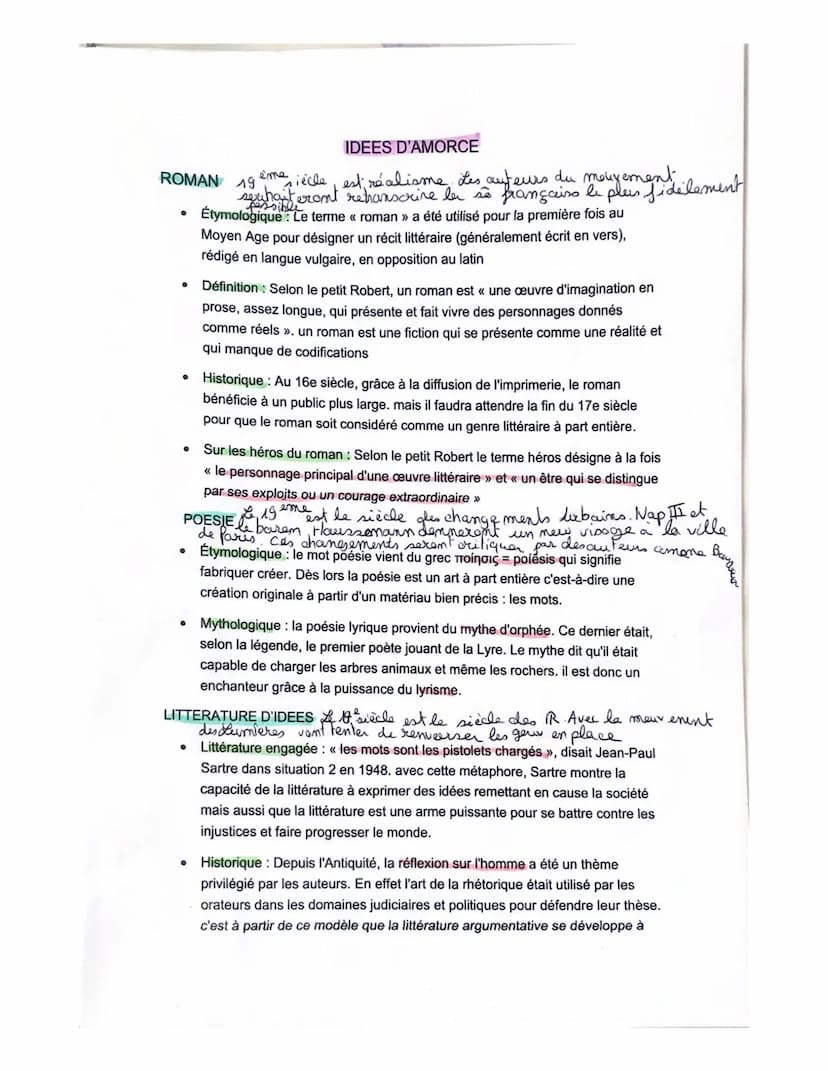 IDEES D'AMORCE
ROMAN 19ème siècle est réalisme Les auteurs du mouvement
souhaiteront retranscrire la sté française le plus fidèlement
possible
• Étymologique : Le terme « roman » a été utilisé pour la première fois au
Moyen Age pour désigner un récit littéraire (généralement écrit en vers),
rédigé en langue vulgaire, en opposition au latin
• Définition : Selon le petit Robert, un roman est « une œuvre d'imagination en
prose, assez longue, qui présente et fait vivre des personnages donnés
comme réels ». un roman est une fiction qui se présente comme une réalité et
qui manque de codifications
• Historique : Au 16e siècle, grâce à la diffusion de l'imprimerie, le roman
bénéficie à un public plus large. mais il faudra attendre la fin du 17e siècle
pour que le roman soit considéré comme un genre littéraire à part entière.
• Sur les héros du roman : Selon le petit Robert le terme héros désigne à la fois
« le personnage principal d'une œuvre littéraire » et « un être qui se distingue
par ses exploits ou un courage extraordinaire »
POESIE Le 19eme est le siècle des changements urbains. Nap III et
le baron Haussmann donneront un new visage à la ville
de Paris. Ces changements seront critiquer par des auteurs
• Étymologique : le mot poésie vient du grec ποίησις = poíesis qui signifie
fabriquer créer. Dès lors la poésie est un art à part entière c'est-à-dire une
création originale à partir d'un matériau bien précis : les mots.
• Mythologique : la poésie lyrique provient du mythe d'orphée. Ce dernier était,
selon la légende, le premier poète jouant de la Lyre. Le mythe dit qu'il était
capable de charger les arbres animaux et même les rochers. il est donc un
enchanteur grâce à la puissance du lyrisme.
LITTERATURE D'IDEES Le siècle est le siècle des Avec la mouvement
des Lumières vont tenter de renverser les en place
• Littérature engagée : « les mots sont les pistolets chargés », disait Jean-Paul
Sartre dans situation 2 en 1948. avec cette métaphore, Sartre montre la
capacité de la littérature à exprimer des idées remettant en cause la société
mais aussi que la littérature est une arme puissante pour se battre contre les
injustices et faire progresser le monde.
• Historique : Depuis l'Antiquité, la réflexion sur l'homme a été un thème
privilégié par les auteurs. En effet l'art de la rhétorique était utilisé par les
orateurs dans les domaines judiciaires et politiques pour défendre leur thèse.
c'est à partir de ce modèle que la littérature argumentative se développe à